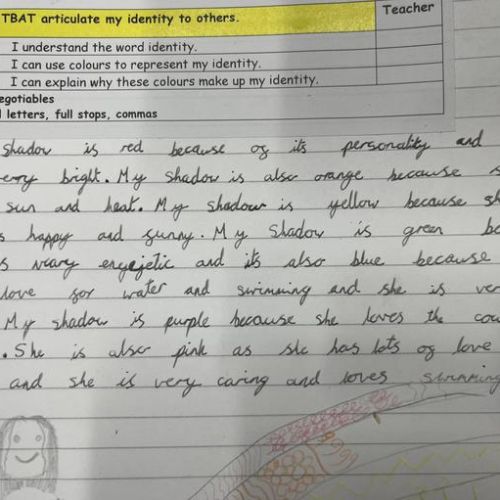 TBAT articulate my identity to others.
Teacher
I understand the word identity.
I can use colours to represent my identity.
I can explain why these colours make up my identity.
egotiables
l letters, full stops, commas
Shadow is red because of its personality and
ery bright. My Shadow is also orange because
sun and heat. My shadow is yellow because sh
s happy and funny. My Shadow is green
s veary engejetic and its also blue because
love for water and swimming and she is ver
My shadow is purple because she loves the cou
. She is also pink as she has lots of love
and she is very caring and loves swimming